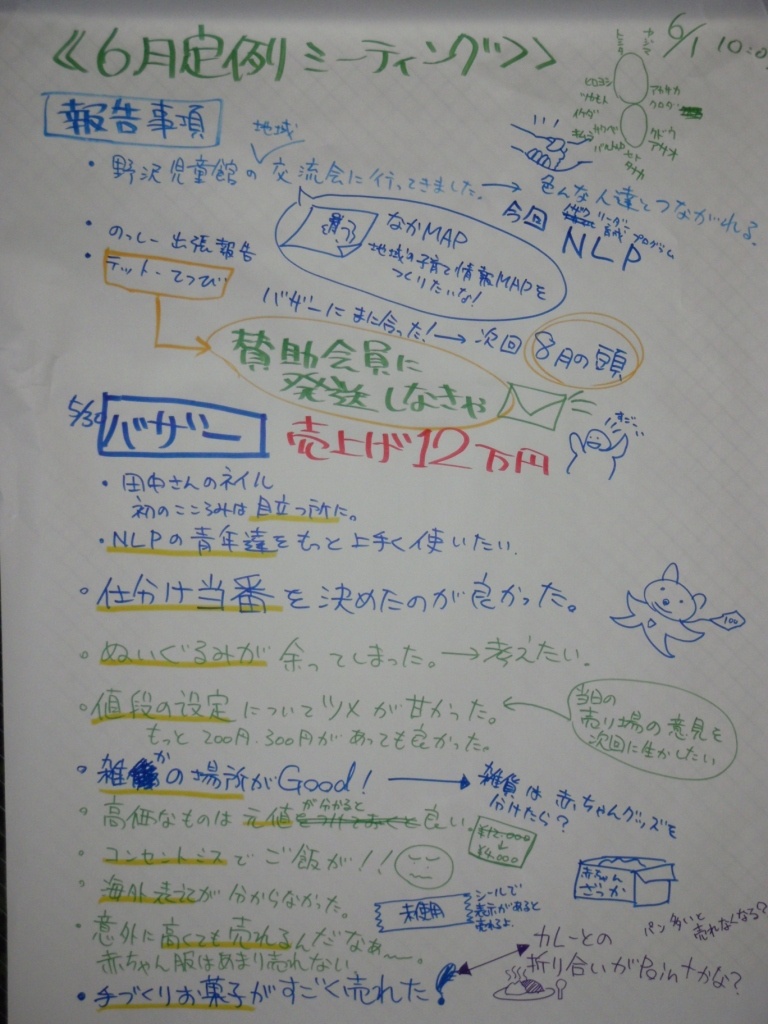 《6月定例ミーティング》
6/1 10:0
トミタ
カジマ
ヒロヨシ
ツカモト
イケダ
アカサカ
クロダ
クドウ
アサオ
タナカ
報告事項
地域
・野沢児童館の交流会に行ってきました。→色んな人達とつながれる。
今回 リーダー育成プログラム
NLP
なかMAP
地域の子育て情報MAPを
つくりたいな!
・のっしー出張報告
・テットーてつび
バザーにまに合った!→次回 8月の頭
賛助会員に
発送しなきゃ
5/30 バザー 売上げ12万円
すごーい
・田中さんのネイル
初のこころみは目立つ所に。
・NLPの青年達をもっと上手く使いたい.
・仕分け当番を決めたのが良かった。
100
・ぬいぐるみが余ってしまった。→考えたい.
・値段の設定についてツメが甘かった。
もっと200円.300円があっても良かった。
当日の
売り場の意見を
次回に生かしたい
・雑かの場所がGood!→雑貨は赤ちゃんグッズを
分けたら?
・高価なものは元値が分かると良い。
¥12.000
↓
¥4.000
・コンセントミスでご飯が!!
赤ちゃん
ざっか
・海外表記が分からなかった。
未使用
シールで
表示があると
売れるよ.
・意外に高くても売れるんだなぁ〜。
赤ちゃん服はあまり売れない
カレーとの
折り合いがPointかな?
パン多いと
売れなくなる?
・手づくりお菓子がすごく売れた!